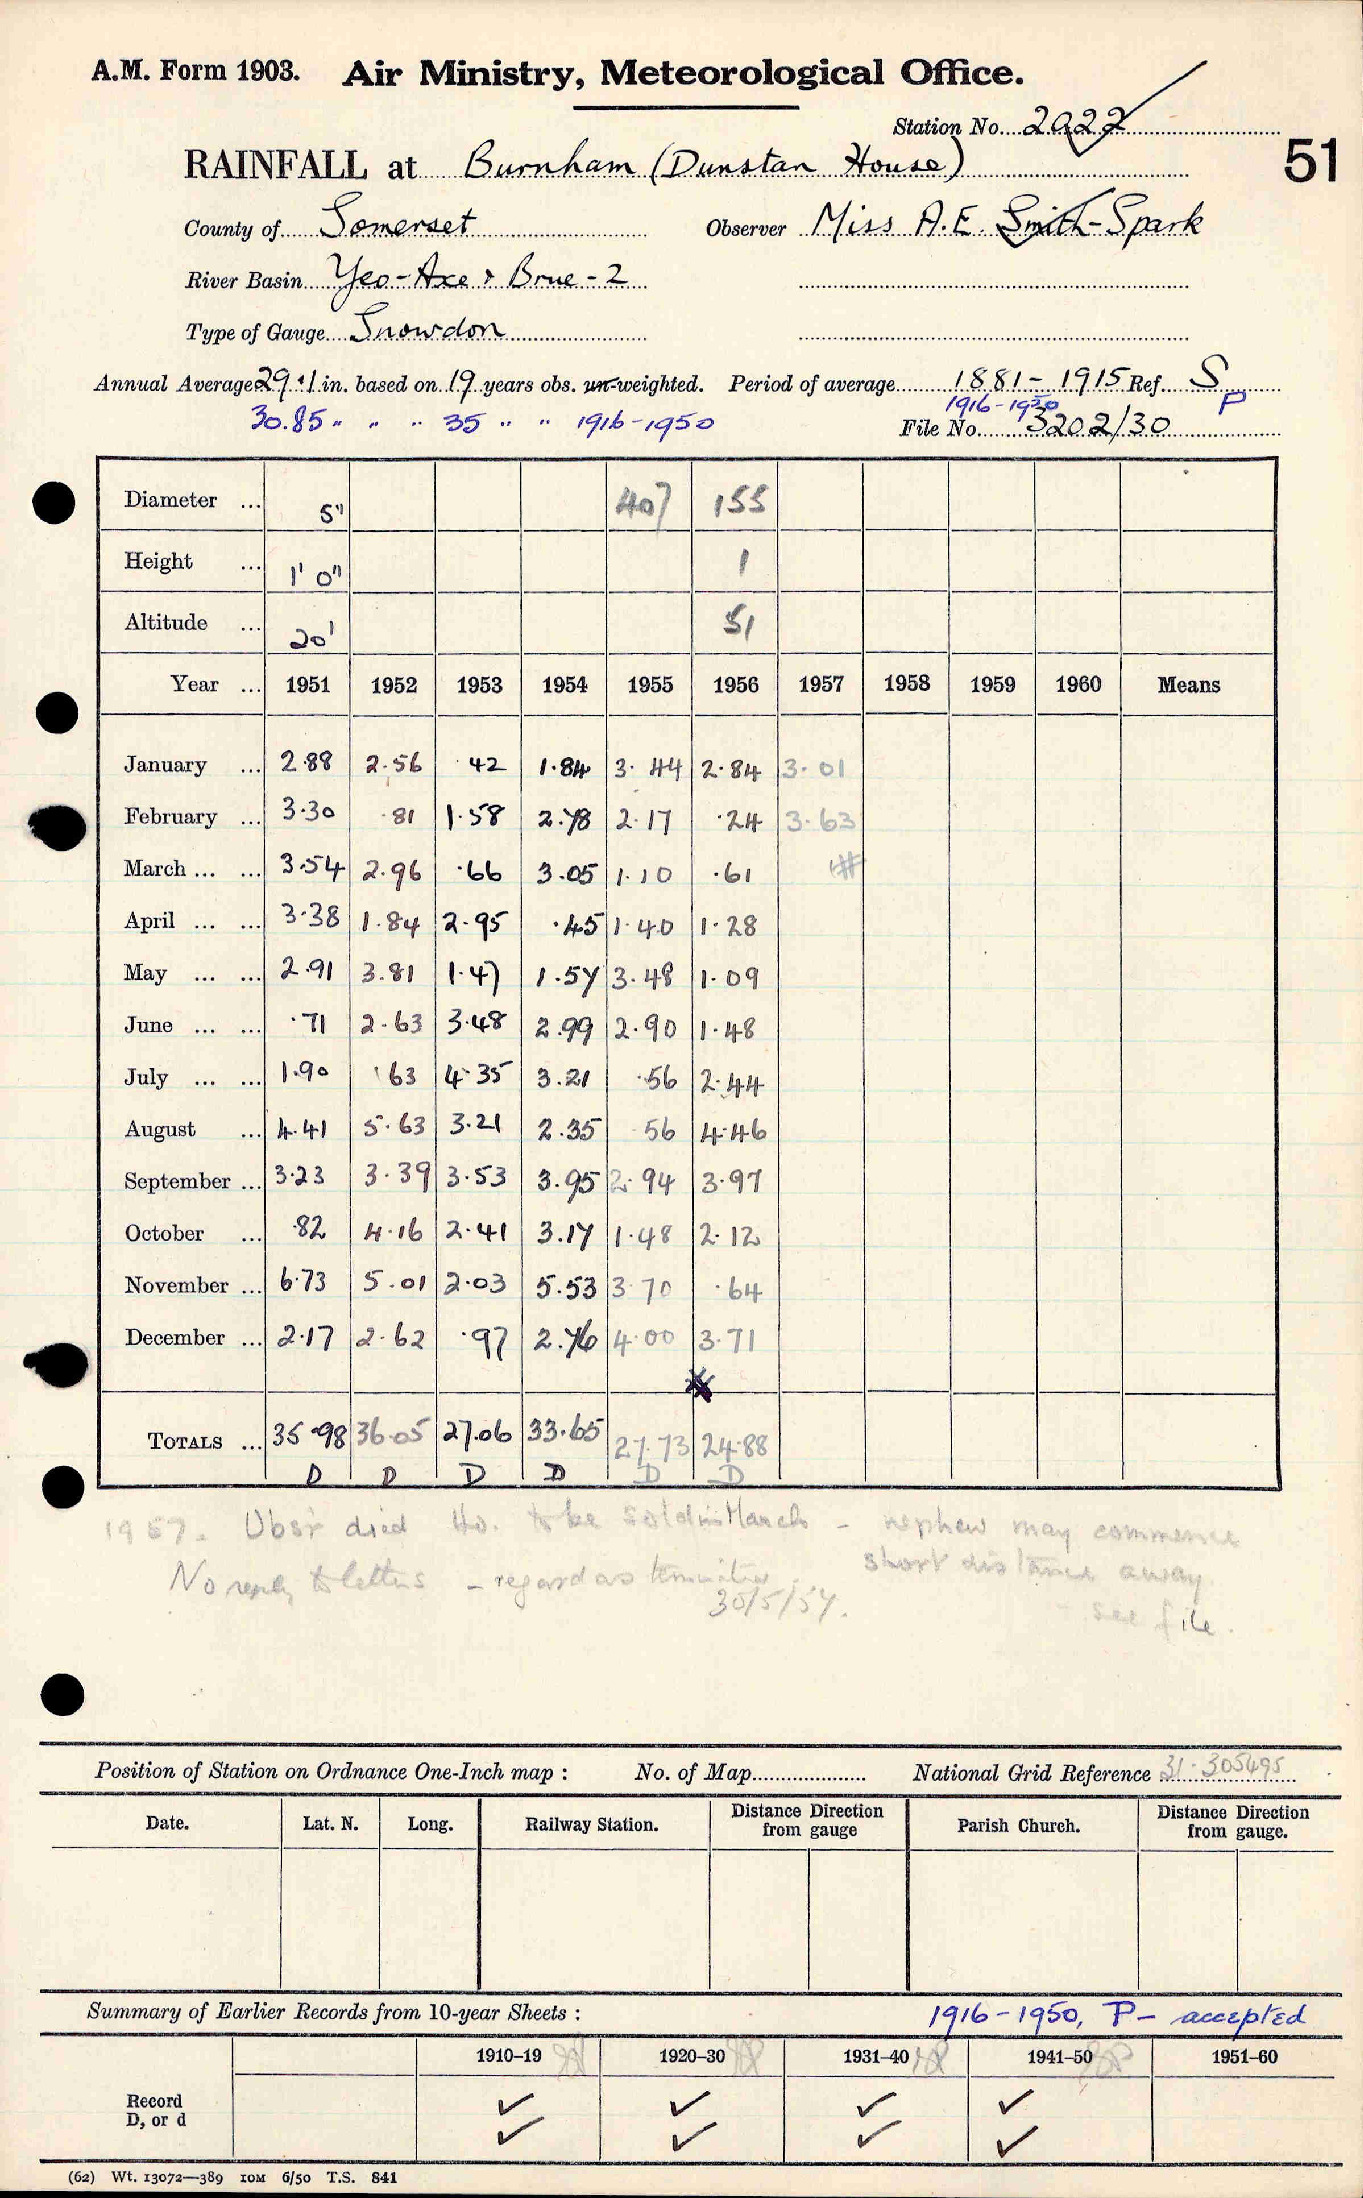 A.M. Form 1903. Air Ministry, Meteorological Office.
Station No. 2022
51
RAINFALL at Burnham (Dunstan House)
County of Somerset Observer Miss A.E. Smith-Spark
River Basin Yeo-Axe & Brue - 2
Type of Gauge Snowdon
Annual Average 29.1 in. based on 19 years obs. un-weighted. Period of average 1881-1915 Ref. S
30.85 " " " 35 " " 1916-1950 1916-1950 P
File No. 3202/30
Diameter ... 5" 407 155
Height ... 1' 0" 1
Altitude ... 20' 51
Year ... 1951 1952 1953 1954 1955 1956 1957 1958 1959 1960 Means
January ... 2.88 2.56 .42 1.84 3.44 2.84 3.01
February ... 3.30 .81 1.58 2.78 2.17 .24 3.63
March ... ... 3.54 2.96 .66 3.05 1.10 .61 #
April ... ... 3.38 1.84 2.95 .45 1.40 1.28
May ... ... 2.91 3.81 1.47 1.57 3.48 1.09
June ... ... .71 2.63 3.48 2.99 2.90 1.48
July ... ... 1.90 .63 4.35 3.21 .56 2.44
August ... 4.41 5.63 3.21 2.35 .56 4.46
September ... 3.23 3.39 3.53 3.95 2.94 3.97
October ... .82 4.16 2.41 3.17 1.48 2.12
November ... 6.73 5.01 2.03 5.53 3.70 .64
December ... 2.17 2.62 .97 2.76 4.00 3.71
TOTALS ... 35.98 36.05 27.06 33.65 27.73 24.88
D D D D D D
1957. Obsr died Ho. to be sold in March - nephew may commence
short distance away
No reply to letters - regard as terminated
30/5/57.
- see file.
Position of Station on Ordnance One-Inch map : No. of Map National Grid Reference 31.305495
Date. Lat. N. Long. Railway Station. Distance Direction from gauge Parish Church. Distance Direction from gauge.
Summary of Earlier Records from 10-year Sheets : 1916-1950, P - accepted
1910-19 1920-30 1931-40 1941-50 1951-60
Record ✓ ✓ ✓ ✓
D, or d ✓ ✓ ✓ ✓
(62) Wt. 13072—389 10M 6/50 T.S. 841